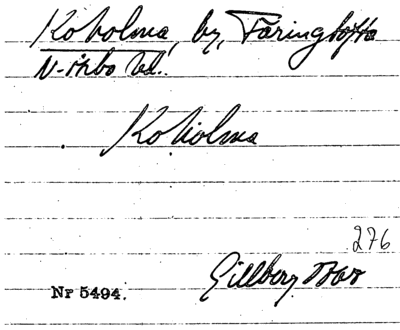 Koholma, by, Färingtofta
N. Åsbo hd.
Koholma
276
Gillberg
Nr 5494.